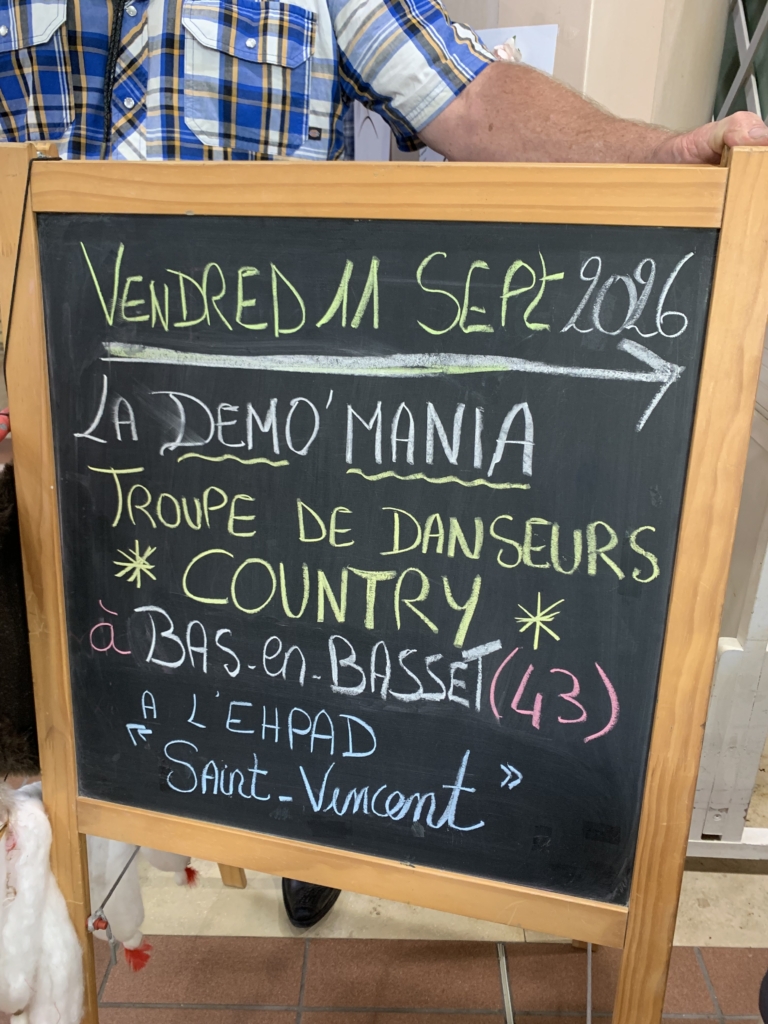 VENDREDI 11 SEPt 2026
LA DEMO'MANIA
TROUPE DE DANSEURS
* COUNTRY *
à BAS-en-BASSET (43)
A L'EHPAD
" Saint-Vincent "